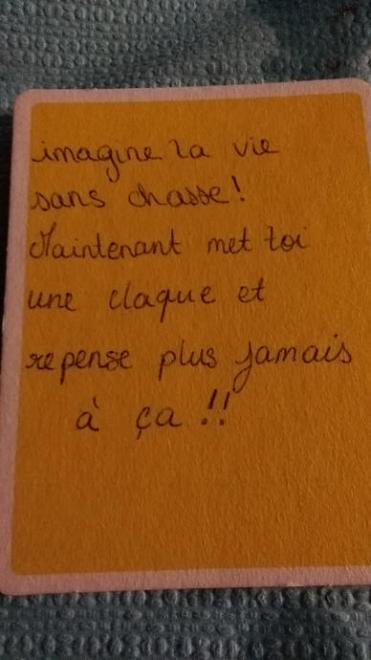 imagine la vie
sans chasse!
Maintenant met toi
une claque et
repense plus jamais
à ça !!